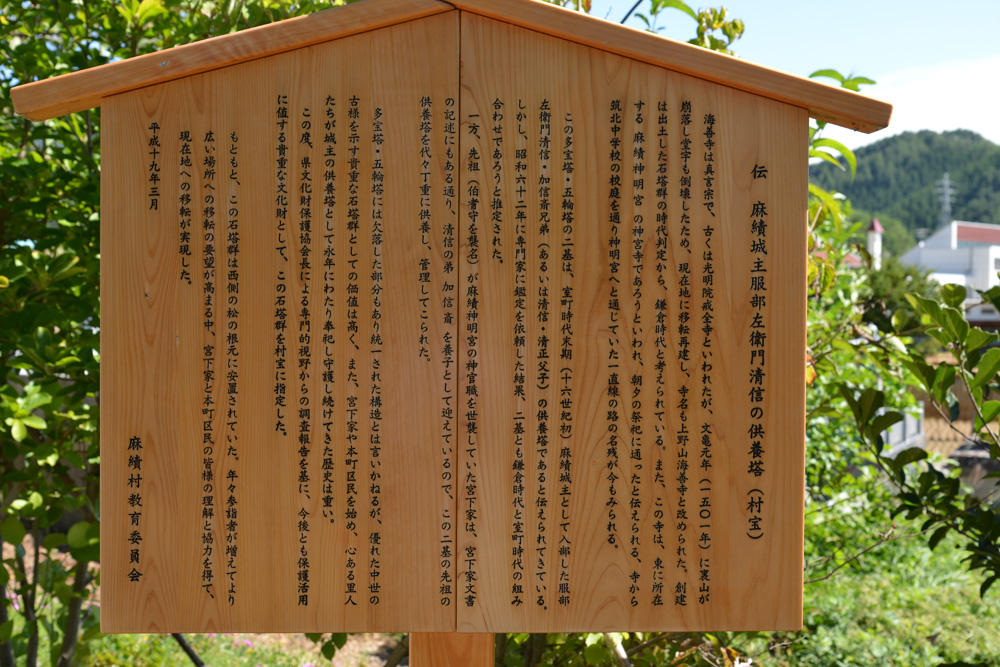 伝 麻績城主服部左衛門清信の供養塔(村宝)
海善寺は真言宗で、古くは光明院戒全寺といわれたが、文亀元年(一五〇一年)に裏山が
崩落し堂宇も倒壊したため、現在地に移転再建し、寺名も上野山海善寺と改められた。創建
は出土した石塔群の時代判定から、鎌倉時代と考えられている。また、この寺は、東に所在
する 麻績神明宮 の神宮寺であろうといわれ、朝夕の祭祀に通ったと伝えられる、寺から
筑北中学校の校庭を通り神明宮へと通じていた一直線の路の名残が今もみられる。
この多宝塔・五輪塔の二基は、室町時代末期(十六世紀初)麻績城主として入部した服部
左衛門清信・加信斎兄弟(あるいは清信・清正父子)の供養塔であると伝えられてきている。
しかし、昭和六十二年に専門家に鑑定を依頼した結果、二基とも鎌倉時代と室町時代の組み
合わせであろうと推定された。
一方、先祖(伯者守を襲名)が麻績神明宮の神官職を世襲していた宮下家は、宮下家文書
の記述にもある通り、清信の弟 加信斎 を養子として迎えているので、この二基の先祖の
供養塔を代々丁重に供養し、管理してこられた。
多宝塔・五輪塔には欠落した部分もあり統一された構造とは言いかねるが、優れた中世の
古様を示す貴重な石塔群としての価値は高く、また、宮下家や本町区民を始め、心ある里人
たちが城主の供養塔として永年にわたり奉祀し守護し続けてきた歴史は重い。
この度、県文化財保護協会長による専門的視野からの調査報告を基に、今後とも保護活用
に値する貴重な文化財として、この石塔群を村宝に指定した。
もともと、この石塔群は西側の松の根元に安置されていた。年々参詣者が増えてより
広い場所への移転の要望が高まる中、宮下家と本町区民の皆様の理解と協力を得て、
現在地への移転が実現した。
平成十九年三月
麻績村教育委員会